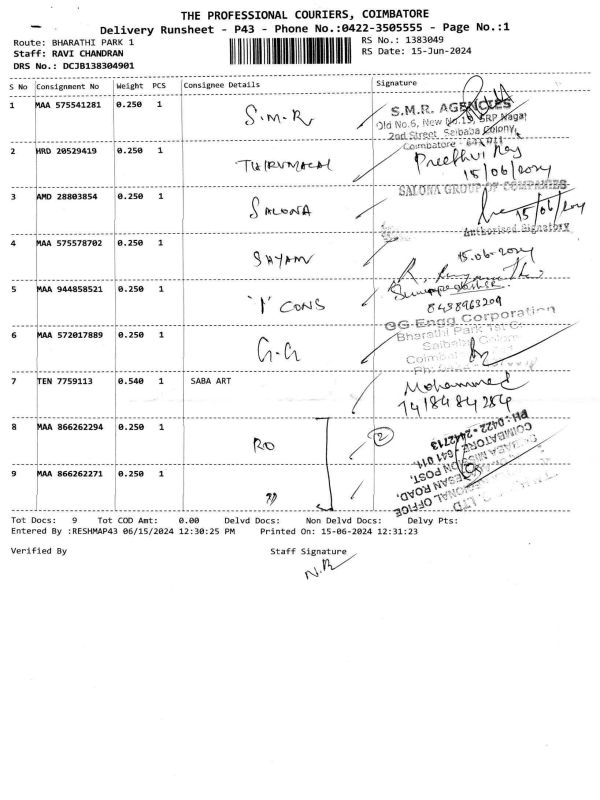 THE PROFESSIONAL COURIERS, COIMBATORE
Delivery Runsheet - P43 - Phone No.:0422-3505555 - Page No.:1
Route: BHARATHI PARK 1
RS No.: 1383049
Staff: RAVI CHANDRAN
RS Date: 15-Jun-2024
DRS No.: DCJB138304901
S No Consignment No Weight PCS Consignee Details Signature
1 MAA 575541281 0.250 1 S.M.R
S.M.R. AGENCIES
Old No.6, New No.13, SRP Nagar
2nd Street, Saibaba Colony,
Coimbatore - 641 011
2 HRD 20529419 0.250 1 THIRUMAGAL
15/06/2024
3 AMD 28803854 0.250 1 SALONA
SALONA GROUP OF COMPANIES
15/06/2024
Authorised Signatory
4 MAA 575578702 0.250 1 SHYAM
15.06.2024
5 MAA 944858521 0.250 1 "I" CONS
8438963209
6 MAA 572017889 0.250 1 G.G
GG Engg Corporation
Bharathi Park
Saibaba Colony
7 TEN 7759113 0.540 1 SABA ART
Mohammed
7418484284
8 MAA 866262294 0.250 1 RO
2
9 MAA 866262271 0.250 1 "
PH : 0422 - 2442713
COIMBATORE - 641 011.
SAIBABA MISSION POST,
REGIONAL OFFICE
Tot Docs: 9 Tot COD Amt: 0.00 Delvd Docs: Non Delvd Docs: Delvy Pts:
Entered By :RESHMAP43 06/15/2024 12:30:25 PM Printed On: 15-06-2024 12:31:23
Verified By Staff Signature
N.R